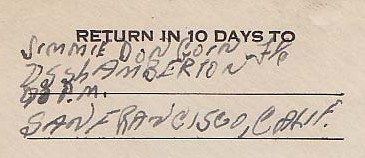 RETURN IN 10 DAYS TO
JIMMIE DON
DSS LAMBERTON
% P.M.
SAN FRANCISCO, CALIF.